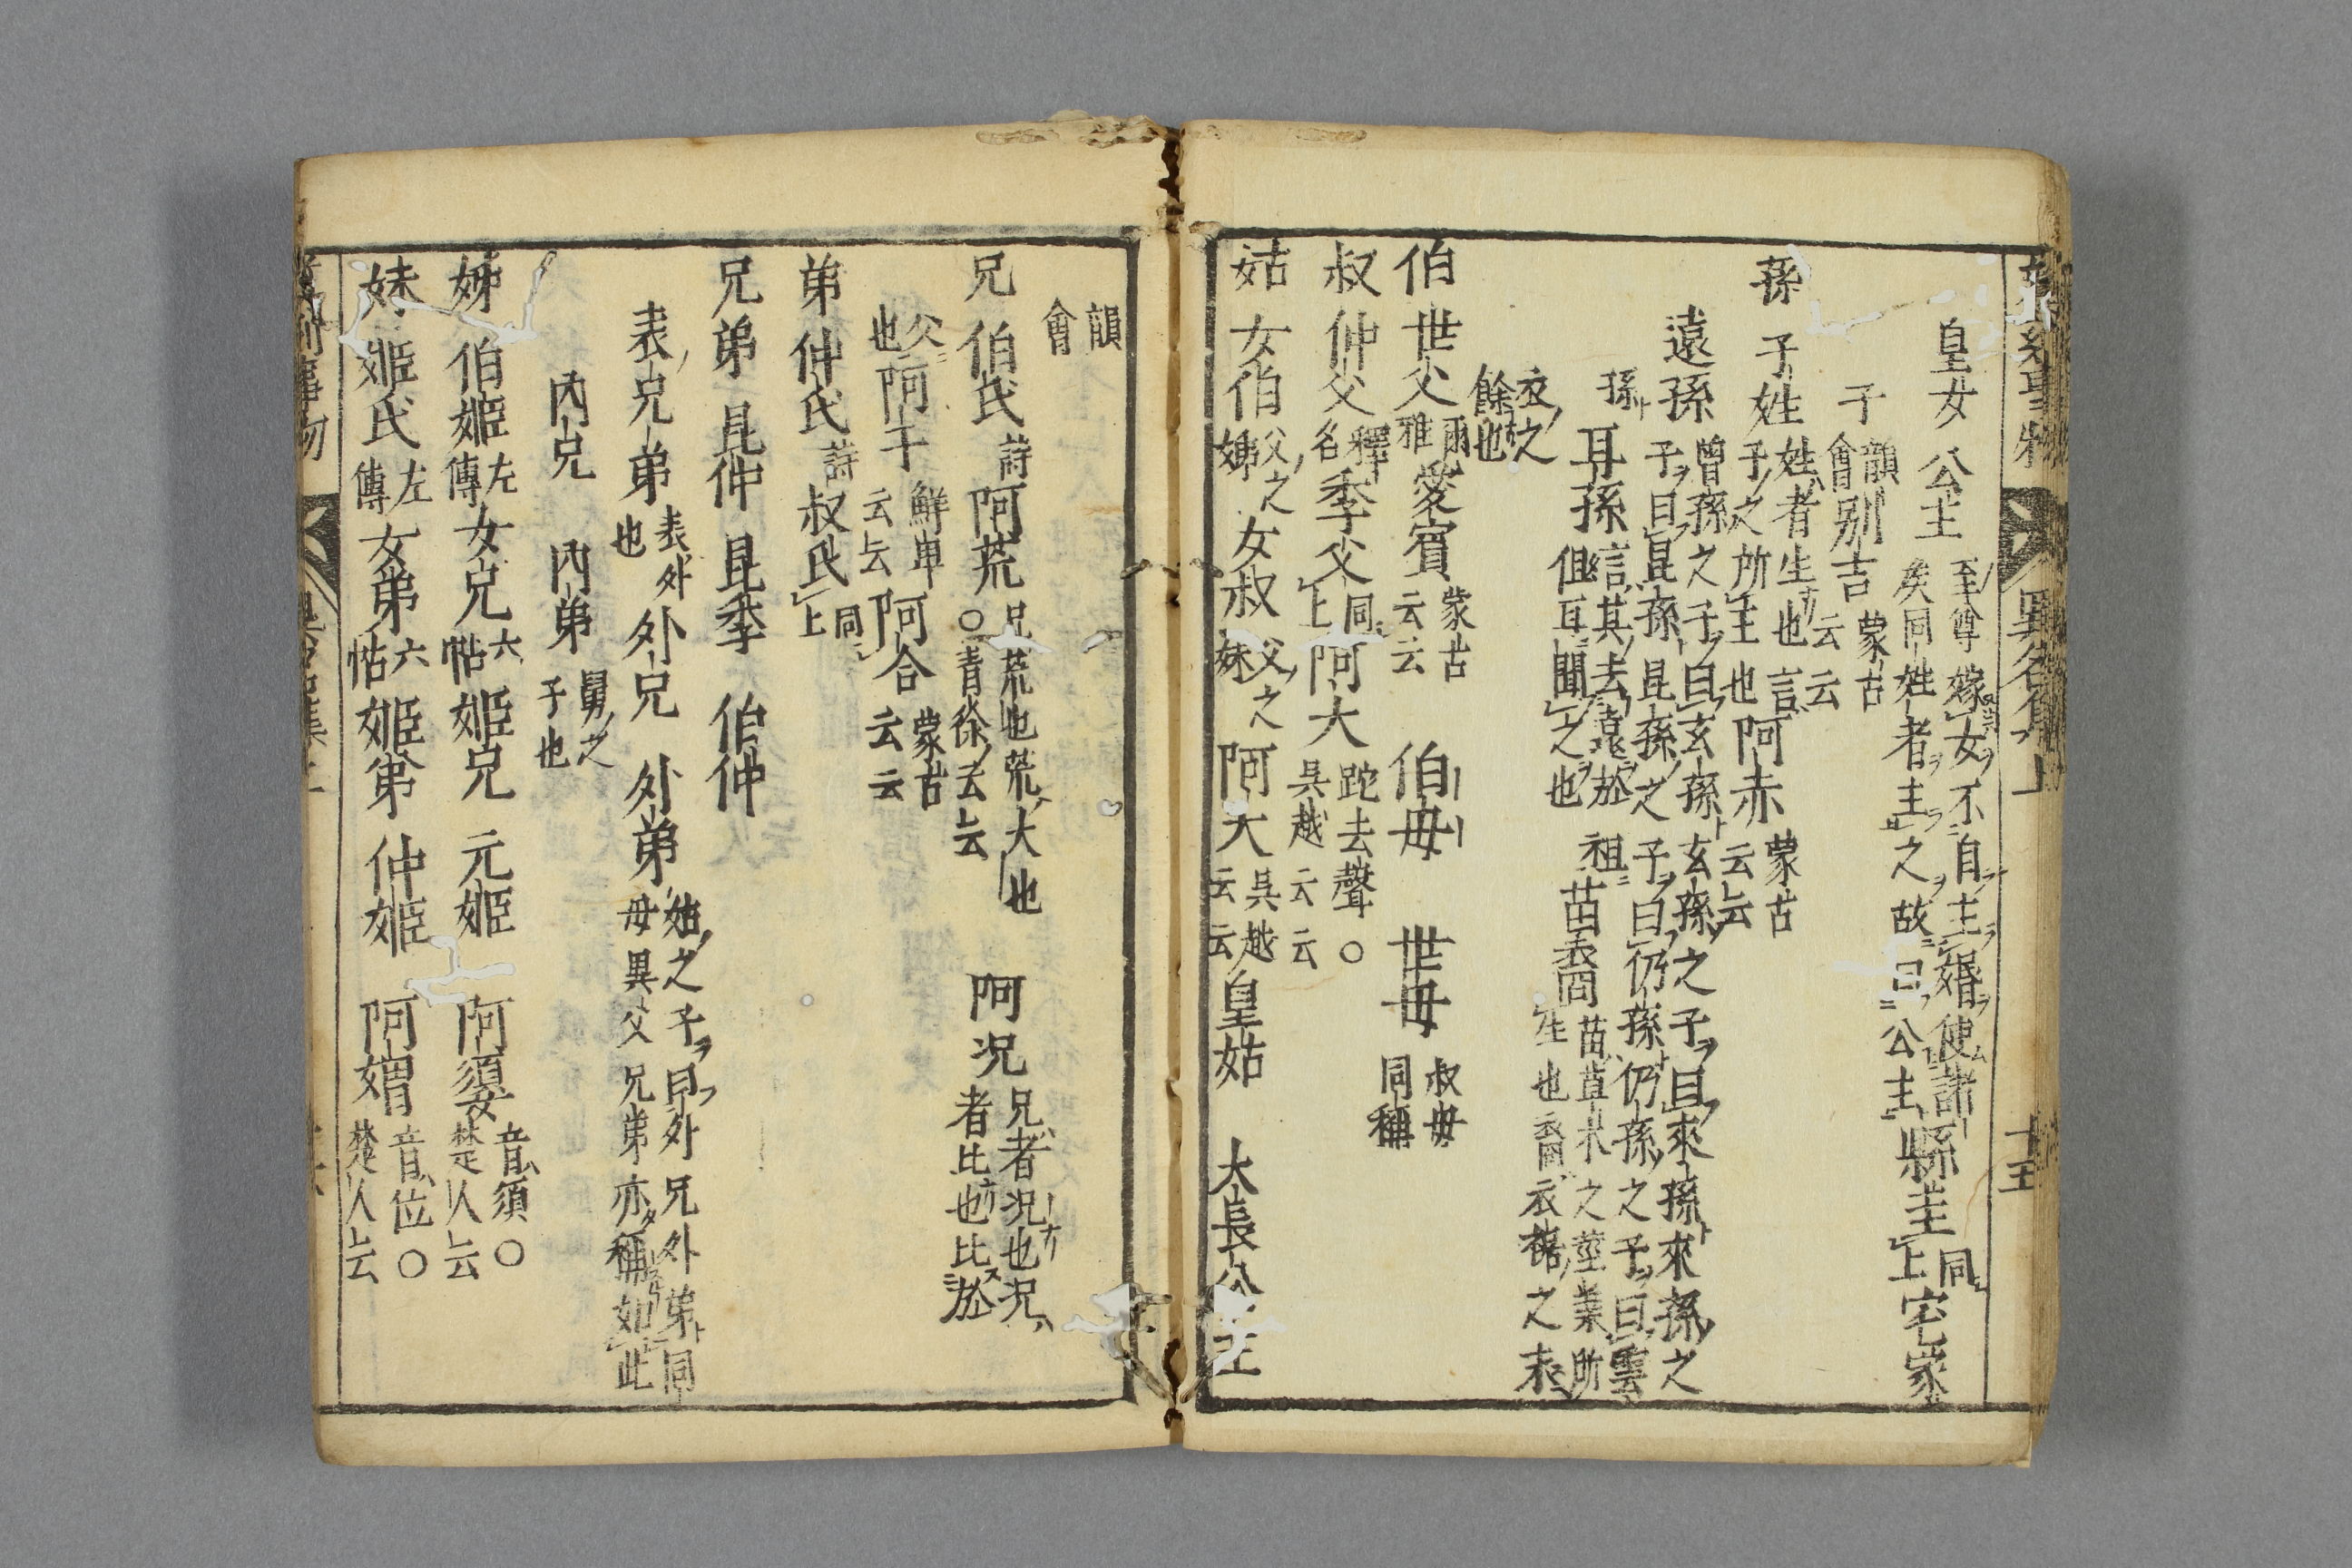 皇女 公主 至尊嫁女不自主婚使諸矦同姓者主之故曰公主 縣主 同上 宅家
子 韻會 別吉 蒙古云云
孫 子姓 姓者生也言子之所主也 阿赤 蒙古云云
遠孫 曾孫之子曰玄孫玄孫之子曰來孫來孫之子曰昆孫昆孫之子曰仍孫仍孫之子曰雲孫
耳孫 言其去遠於祖但耳聞之也 苗裔 苗草木之莖葉所生也裔衣裾之末衣之餘也
伯 世父 爾雅 愛賓 蒙古云云 伯母 世母 叔母同稱
叔 仲父 釋名 季父 同上 阿大 跎去聲○吳越云云
姑 女伯 父之姊 女叔 父之妹 阿大 吳越云云 皇姑 大長公主
韻會
兄 伯氏 詩 阿荒 兄荒也荒大也○青徐云云 阿况 兄者况也况者比也比於父也
阿干 鮮卑云云 阿合 蒙古云云
弟 仲氏 詩 叔氏 同上
兄弟 昆仲 昆季 伯仲
表兄弟 表外也 外兄 外弟 姑之子曰外兄外弟同母異父兄弟亦稱如此
內兄 內弟 舅之子也
姊 伯姬 左傳 女兄 六帖 姬兄 元姬 阿嬃 音須○楚人云
妹 姬氏 左傳 女弟 六帖 姬弟 仲姬 阿媦 音位○楚人云